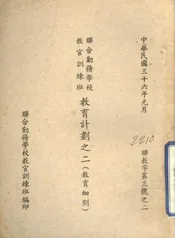 中華民國三十六年元月
聯教字第三號之二
2210
聯合勤務學校
教官訓練班
教育計劃之二(教育細別)
聯合勤務學校教官訓練班編印